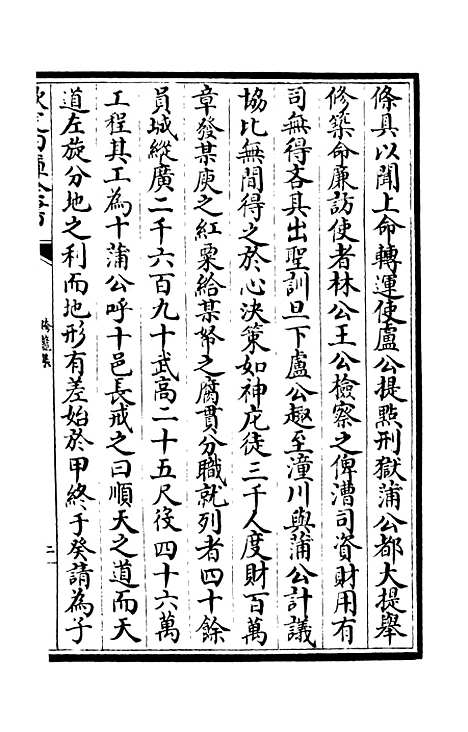 條具以聞上命轉運使盧公提㸃刑獄蒲公都大提舉
修築命廉訪使者林公王公檢察之俾漕司資財用有
司無得吝具出聖訓旦下盧公趣至潼川與蒲公計議
協比無間得之於心决策如神庀徒三千人度財百萬
章發某庾之紅粟給某帑之腐貫分職就列者四十餘
員城縱廣二千六百九十武高二十五尺役四十六萬
工程其工為十蒲公呼十邑長戒之曰順天之道而天
道左旋分地之利而地形有差始於甲終于癸請為子
跨鼇集